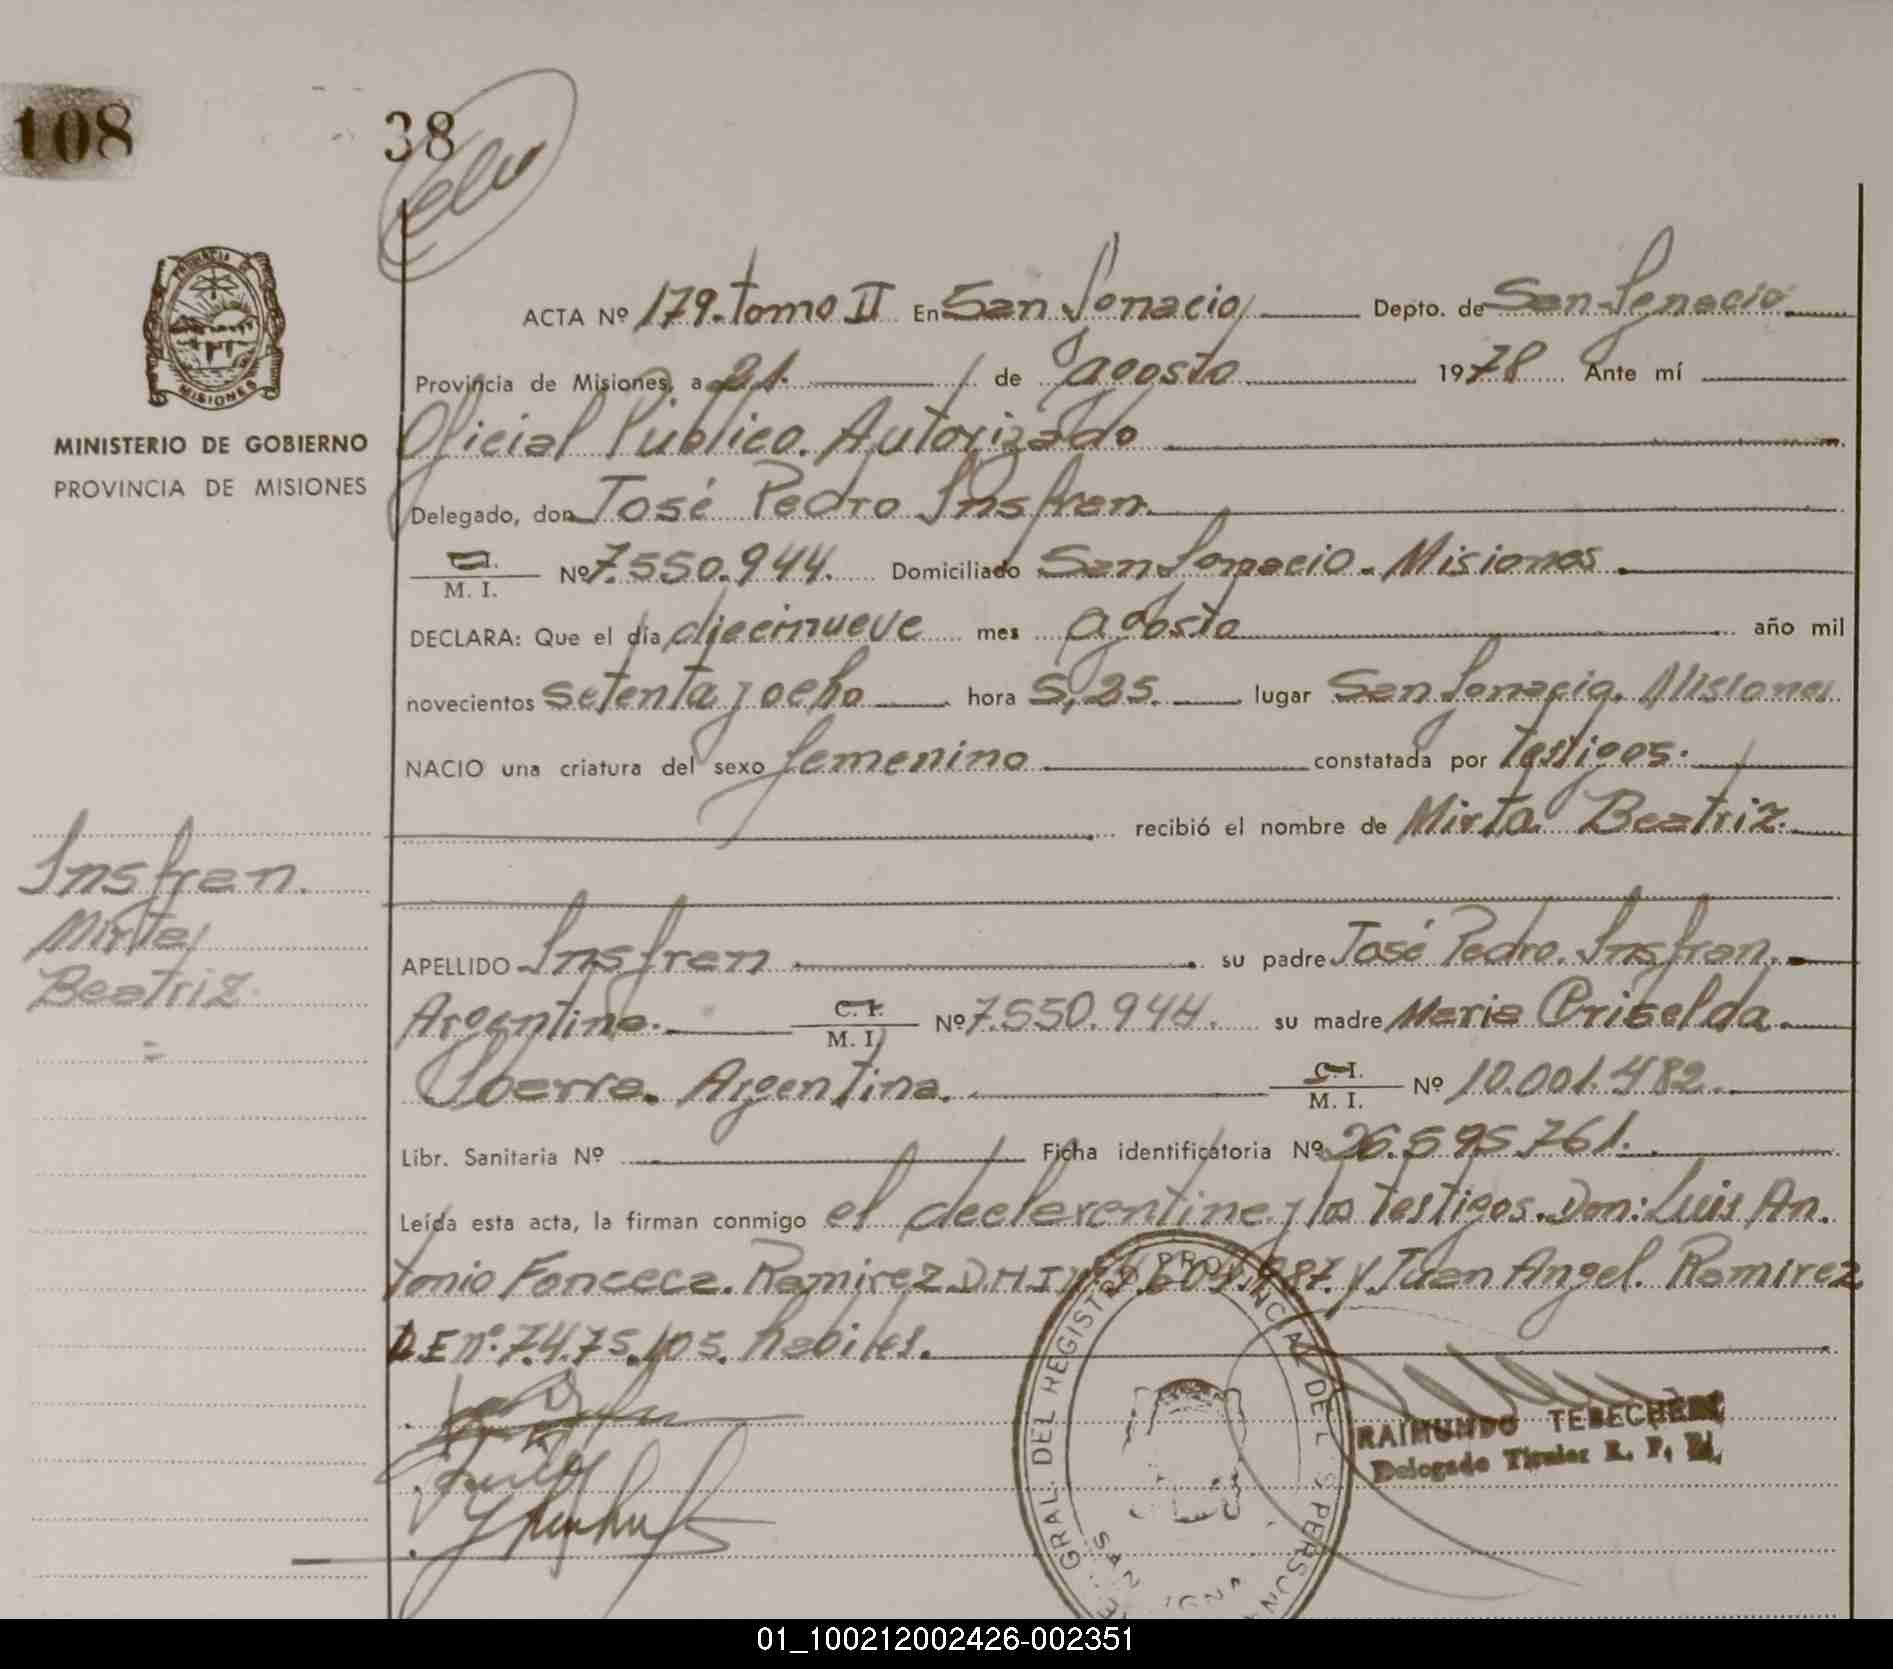 108 38
ACTA Nº 179. tomo II En San Ignacio Depto. de San Ignacio
Provincia de Misiones, a 21. de agosto 1978 Ante mí
Oficial Publico. Autorizado
Delegado, don José Pedro Insfran.
C.I.
M. I. Nº 7.550.944. Domiciliado San Ignacio. Misiones.
DECLARA: Que el día diecinueve mes agosto año mil
novecientos setenta y ocho hora 5,25. lugar San Ignacio. Misiones
NACIO una criatura del sexo femenino constatada por testigos.
recibió el nombre de Mirta Beatriz.
APELLIDO Insfran su padre José Pedro. Insfran.
Argentino. C. I.
M. I. Nº 7.550.944. su madre Maria Griselda
Ibarra. Argentina. C. I.
M. I. Nº 10.001.482.
Libr. Sanitaria Nº Ficha identificatoria Nº 26.595.761.
Leída esta acta, la firman conmigo el declarentine y los testigos. Don: Luis An.
tonio Fonceca. Ramirez D.N.I y Juan Angel. Ramirez
D.E nº. 7.475.105. habiles.
PROVINCIA DE MISIONES
MINISTERIO DE GOBIERNO
PROVINCIA DE MISIONES
Insfran.
Mirta
Beatriz.
GRAL. DEL REGISTRO PROVINCIAL DE L S PERSONAS
RAIMUNDO TEBECHERI
Delegado Titular R. P. P.
01_100212002426-002351